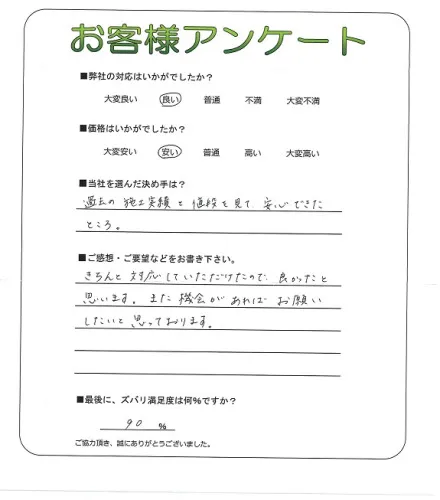 お客様アンケート
■弊社の対応はいかがでしたか？
大変良い 良い 普通 不満 大変不満
■価格はいかがでしたか？
大変安い 安い 普通 高い 大変高い
■当社を選んだ決め手は？
過去の施工実績と値段を見て、安心できた
ところ。
■ご感想・ご要望などをお書き下さい。
きちんと対応していただけたので、良かったと
思います。また機会があればお願い
したいと思っております。
■最後に、ズバリ満足度は何%ですか？
90 %
ご協力頂き、誠にありがとうございました。